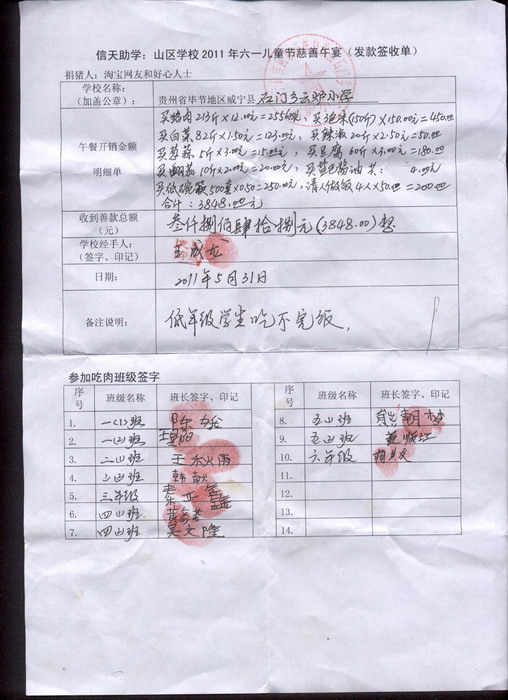 信天助学：山区学校 2011 年六一儿童节慈善午宴（发款签收单）
捐猪人：淘宝网友和好心人士
学校名称：
（加盖公章）：
贵州省毕节地区威宁县石门乡云炉小学
午餐开销金额
明细单
买猪肉213斤×12.00=2556元，买泡米(150斤)×3.00=450.00
买白菜82斤×1.50=123.00元，买辣椒20斤×2.50=50.00
买葱蒜5斤×3.00=15.00元，买豆腐60斤×3.00=180.00
买 10斤×2.00=20.00元，买 酱油共：4.00元
买纸碗筷500套×0.50=250.00元，请人做饭4人×50.00=200.00
合计：3848.00元
收到善款总额
（元）
叁仟捌佰肆拾捌元(3848.00)整
学校经手人：
（签字、印记）
王成龙
日期：
2011年5月31日
备注说明：
低年级学生吃不完饭。
参加吃肉班级签字
序号 班级名称 班长签字、印记 序号 班级名称 班长签字、印记
1. 一(1)班 陈
8. 五(1)班 朝
2. 一(2)班
9. 五(2)班
3. 二(1)班 王
10. 六年级
4. 二(2)班 韩献
11.
5. 三年级
12.
6. 四(1)班
13.
7. 四(2)班 吴文隆
14.